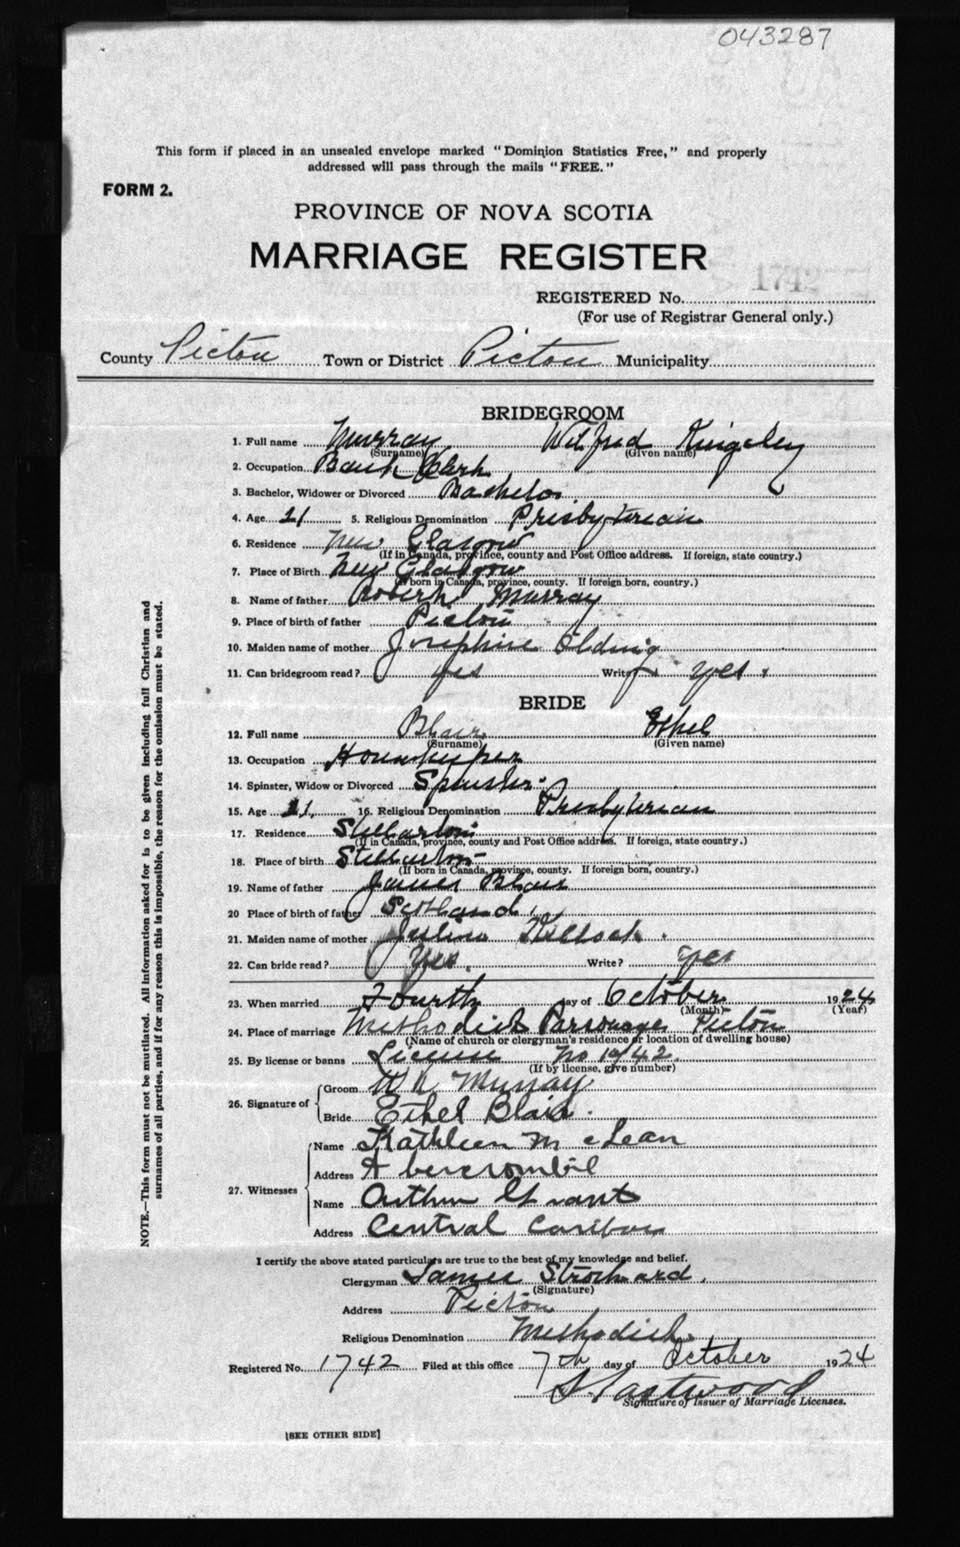 043287
This form if placed in an unsealed envelope marked "Dominion Statistics Free," and properly
addressed will pass through the mails "FREE."
FORM 2.
PROVINCE OF NOVA SCOTIA
MARRIAGE REGISTER
1742
REGISTERED No.
(For use of Registrar General only.)
County Pictou Town or District Pictou Municipality
BRIDEGROOM
1. Full name Murray Wilfred Kingsley
(Surname) (Given name)
2. Occupation Bank Clerk
3. Bachelor, Widower or Divorced Bachelor
4. Age 21 5. Religious Denomination Presbyterian
6. Residence New Glasgow
(If in Canada, province, county and Post Office address. If foreign, state country.)
7. Place of Birth New Glasgow
(If born in Canada, province, county. If foreign born, country.)
8. Name of father Robert Murray
9. Place of birth of father Pictou
10. Maiden name of mother Josephine Olding
11. Can bridegroom read? yes Write? yes
BRIDE
12. Full name Blair Ethel
(Surname) (Given name)
13. Occupation Housekeeper
14. Spinster, Widow or Divorced Spinster
15. Age 21 16. Religious Denomination Presbyterian
17. Residence Stellarton
(If in Canada, province, county and Post Office address. If foreign, state country.)
18. Place of birth Stellarton
(If born in Canada, province, county. If foreign born, country.)
19. Name of father James Blair
20 Place of birth of father Scotland
21. Maiden name of mother
22. Can bride read? Yes. Write? yes
23. When married Fourth day of October 1924
(Month) (Year)
24. Place of marriage Methodist Parsonage Pictou
(Name of church or clergyman's residence or location of dwelling house)
25. By license or banns License No 1742
(If by license, give number)
26. Signature of
Groom W K Murray
Bride Ethel Blair.
27. Witnesses
Name Kathleen McLean
Address Abercrombie
Name Arthur Grant
Address Central Caribou
I certify the above stated particulars are true to the best of my knowledge and belief.
Clergyman James Strothard.
(Signature)
Address Pictou
Religious Denomination Methodist
Registered No. 1742 Filed at this office 7th day of October 1924
Signature of Issuer of Marriage Licenses.
[SEE OTHER SIDE]
NOTE.—This form must not be mutilated. All information asked for is to be given including full Christian and
surnames of all parties, and if for any reason this is impossible, the reason for the omission must be stated.